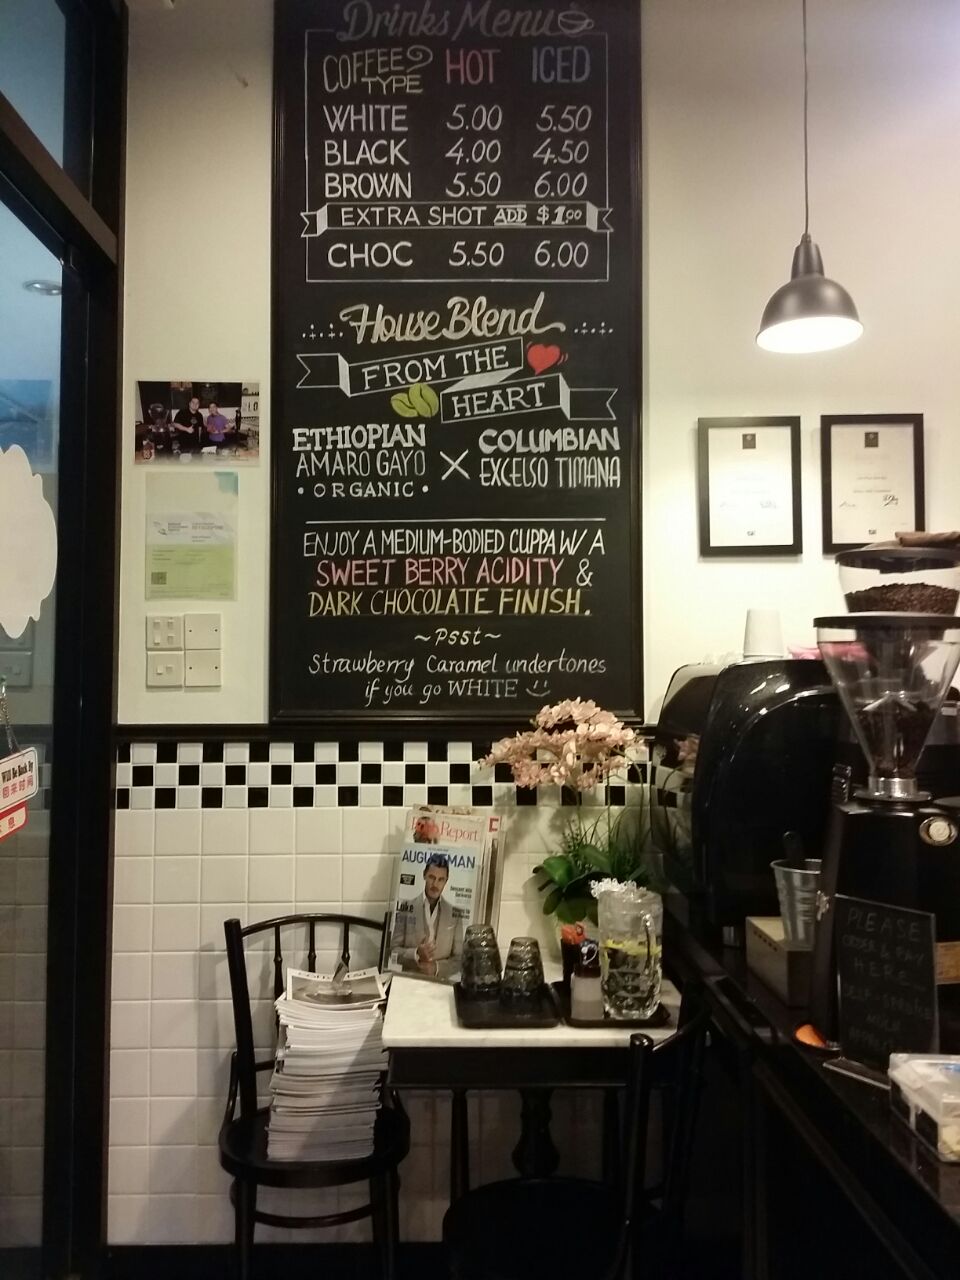 Drinks Menu
COFFEE TYPE HOT ICED
WHITE 5.00 5.50
BLACK 4.00 4.50
BROWN 5.50 6.00
EXTRA SHOT ADD $1.00
CHOC 5.50 6.00
House Blend
FROM THE
HEART
ETHIOPIAN
AMARO GAYO
• ORGANIC •
X
COLUMBIAN
EXCELSO TIMANA
ENJOY A MEDIUM-BODIED CUPPA W/ A
SWEET BERRY ACIDITY &
DARK CHOCOLATE FINISH.
~Psst~
Strawberry Caramel undertones
if you go WHITE
Will Be Back By
回来时间
息
Report
AUGUSTMAN
Luke
PLEASE
ORDER & PAY
HERE